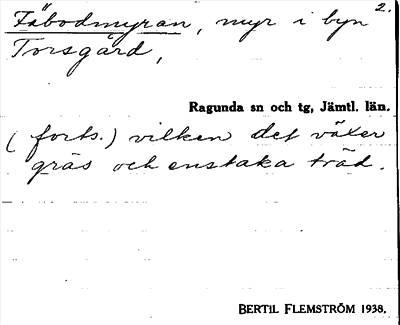 2.
Fäbodmyran, myr i byn
Torsgård,
Ragunda sn och tg, Jämtl. län.
(forts.) vilken det växer
gräs och enstaka träd.
BERTIL FLEMSTRÖM 1938.